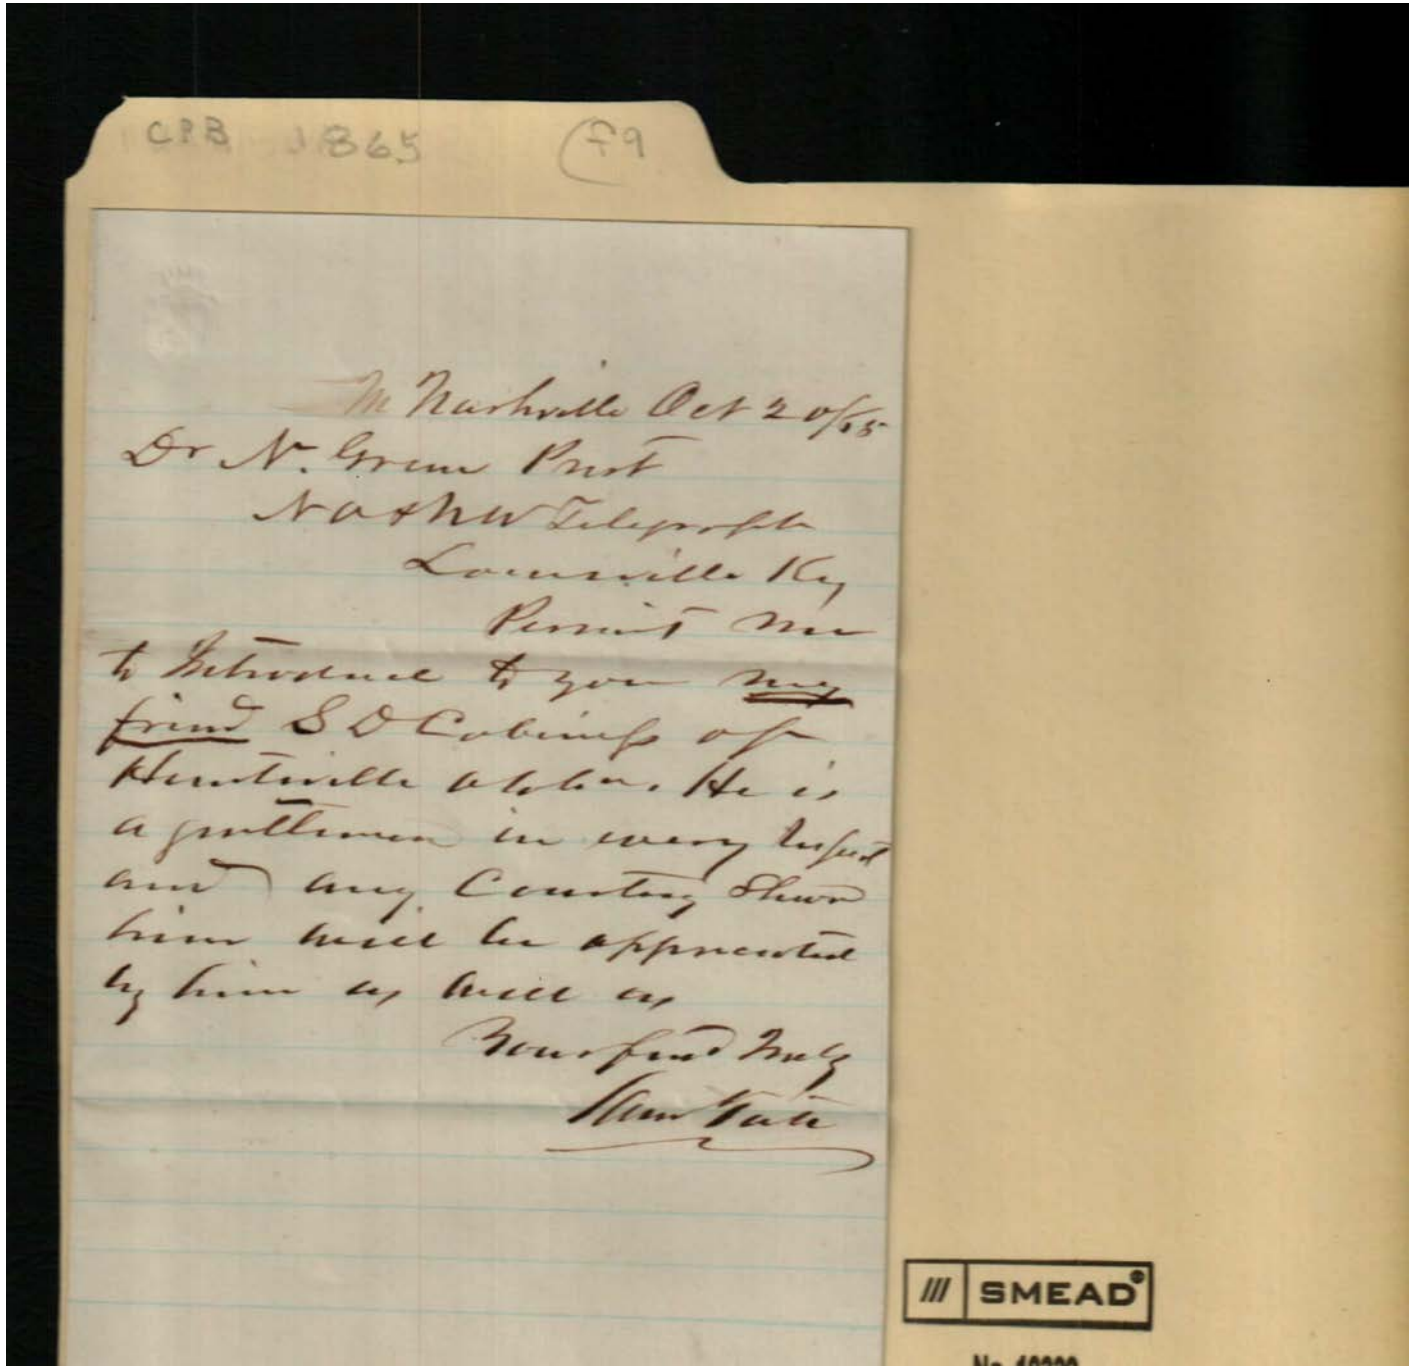 CPB 1865 f9
Nashville Oct 20/65
Dr N. Green Prest
N O & N W Telegraph
Louisville Ky
Permit me
to Introduce to you my
friend S D Cabiness of
Huntsville Alaba. He is
a gentleman in every respect
and any Courtesy Shown
him will be appreciated
by him as well as
Your friend Truly
Sam Tate
SMEAD
No.